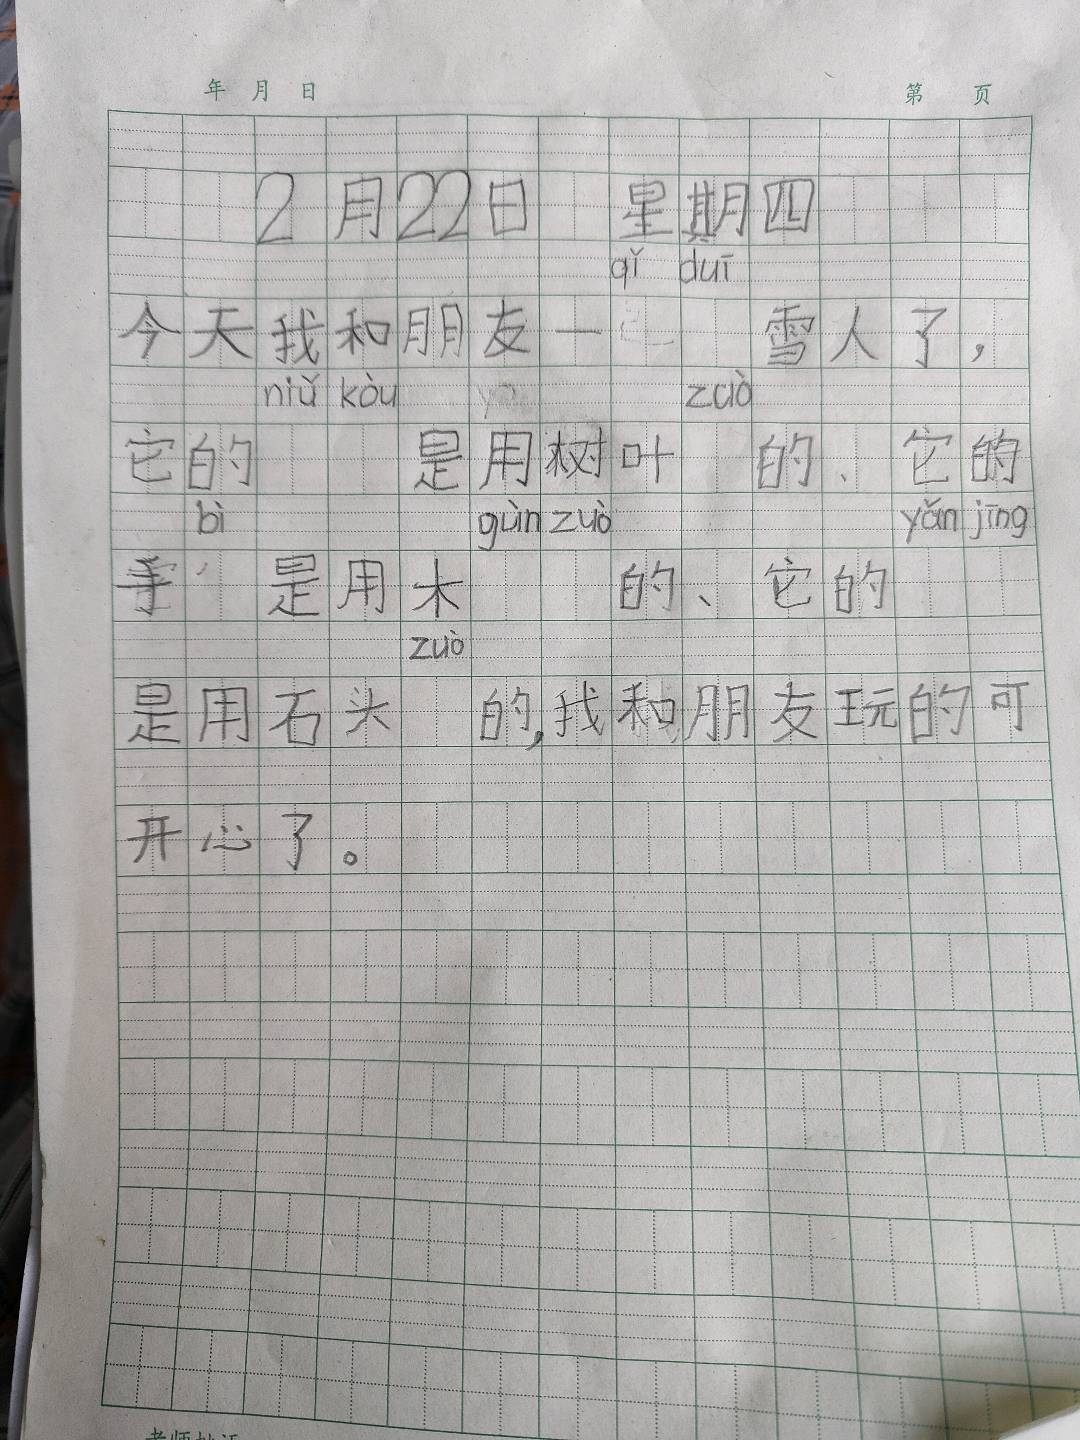 年 月 日 第 页
2月22日 星期四
qǐ duī
今天我和朋友一 雪人了，
niǔ kòu zuò
它的 是用树叶 的、它的
bì gùn zuò yǎn jīng
手 是用木 的、它的
zuò
是用石头 的,我和朋友玩的可
开心了。